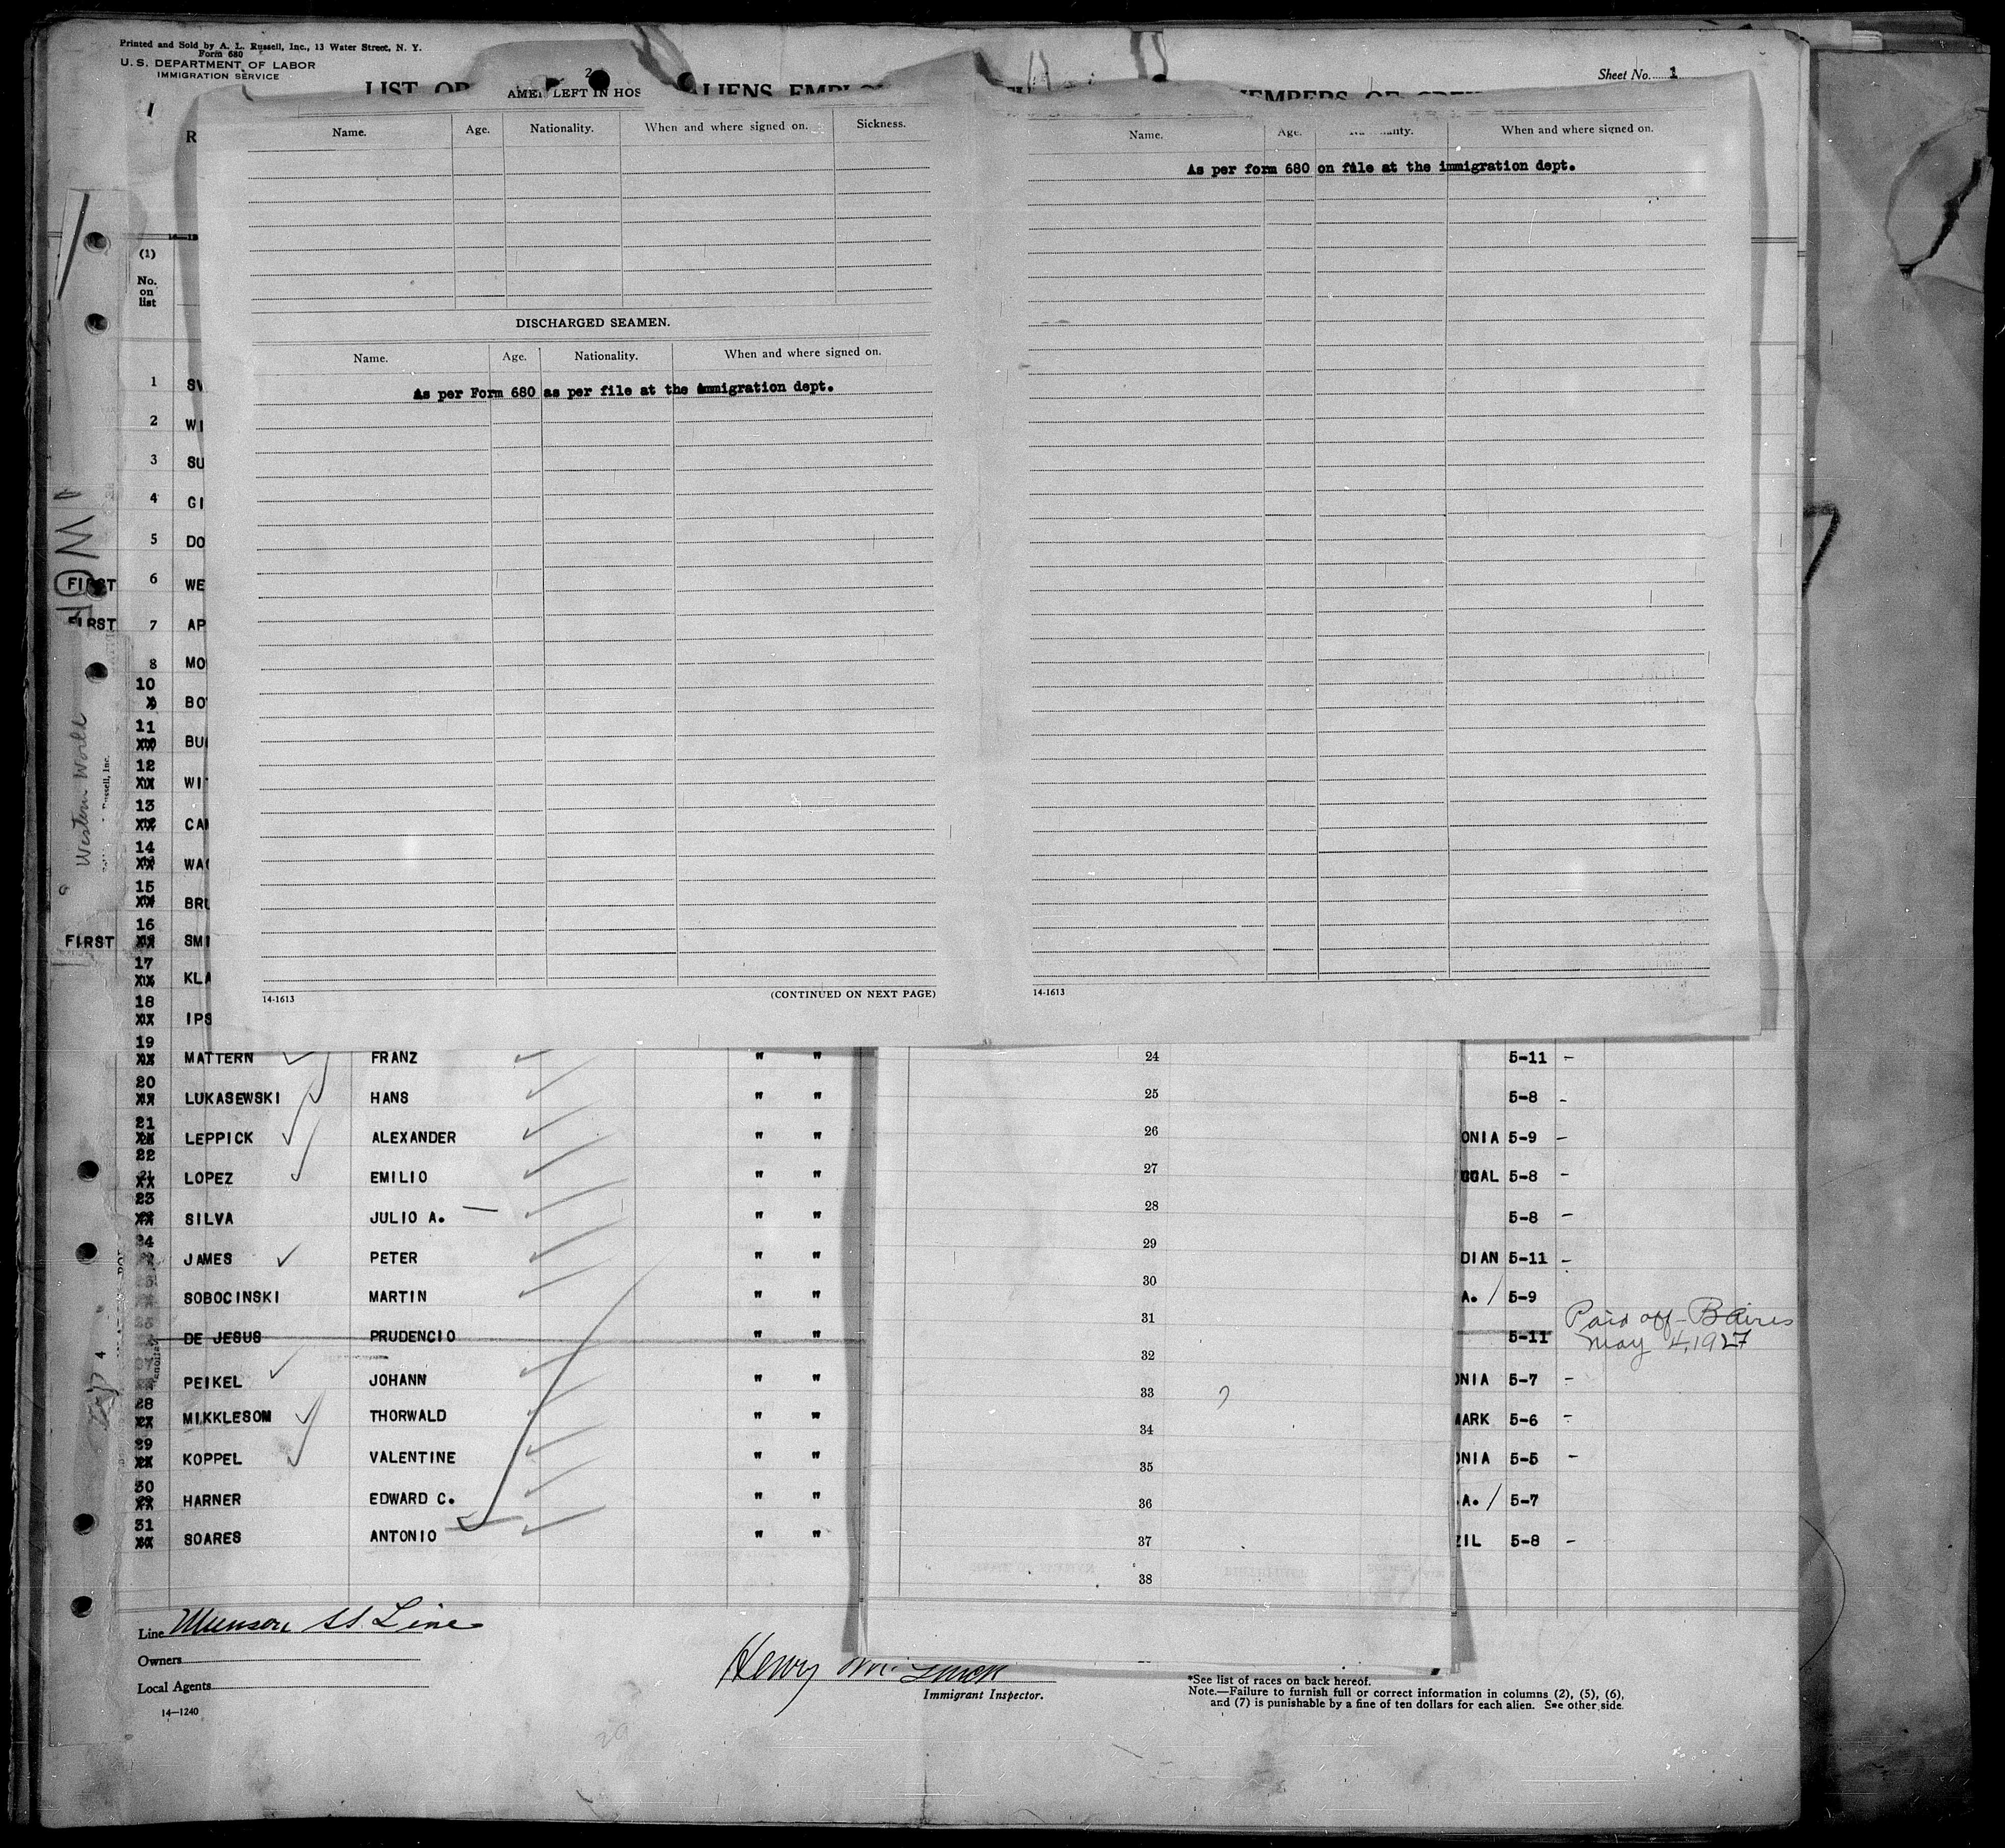 Printed and Sold by A. L. Russell, Inc., 13 Water Street, N. Y.
Form 680
U. S. DEPARTMENT OF LABOR
IMMIGRATION SERVICE
Sheet No. 1
LIST OR
LEFT IN HOS
Name. Age. Nationality. When and where signed on. Sickness.
DISCHARGED SEAMEN.
Name. Age. Nationality. When and where signed on.
As per Form 680 as per file at the immigration dept.
14-1613 (CONTINUED ON NEXT PAGE)
Name. Age. When and where signed on.
As per form 680 on file at the immigration dept.
14-1613
(1)
No.
on
list
1 SV
2 WI
3 SU
4 GI
5 DO
FIRST 6 WE
FIRST 7 AP
8 MO
10 BO
11 BU
12 WI
13 CA
14 WA
15 BR
FIRST 16 SM
17 KL
18 IPS
Western World
19 MATTERN FRANZ " " 24 5-11 -
20 LUKASEWSKI HANS " " 25 5-8 -
21 LEPPICK ALEXANDER " " 26 ONIA 5-9 -
22 LOPEZ EMILIO " " 27 GAL 5-8 -
23 SILVA JULIO A. " " 28 5-8 -
24 JAMES PETER " " 29 DIAN 5-11 -
SOBOCINSKI MARTIN " " 30 A. / 5-9
31
DE JESUS PRUDENCIO " " 5-11 Paid off - B Aires
May 4, 1927
32
PEIKEL JOHANN " " 33 NIA 5-7 -
28 MIKKLESOM THORWALD " " 34 MARK 5-6 -
29 KOPPEL VALENTINE " " 35 NIA 5-5 -
30 HARNER EDWARD C. " " 36 A. / 5-7
31 SOARES ANTONIO " " 37 ZIL 5-8 -
38
Line Munson SS. Line
Owners
Local Agents
14-1240
Henry
Immigrant Inspector.
*See list of races on back hereof.
Note.—Failure to furnish full or correct information in columns (2), (5), (6),
and (7) is punishable by a fine of ten dollars for each alien. See other side.